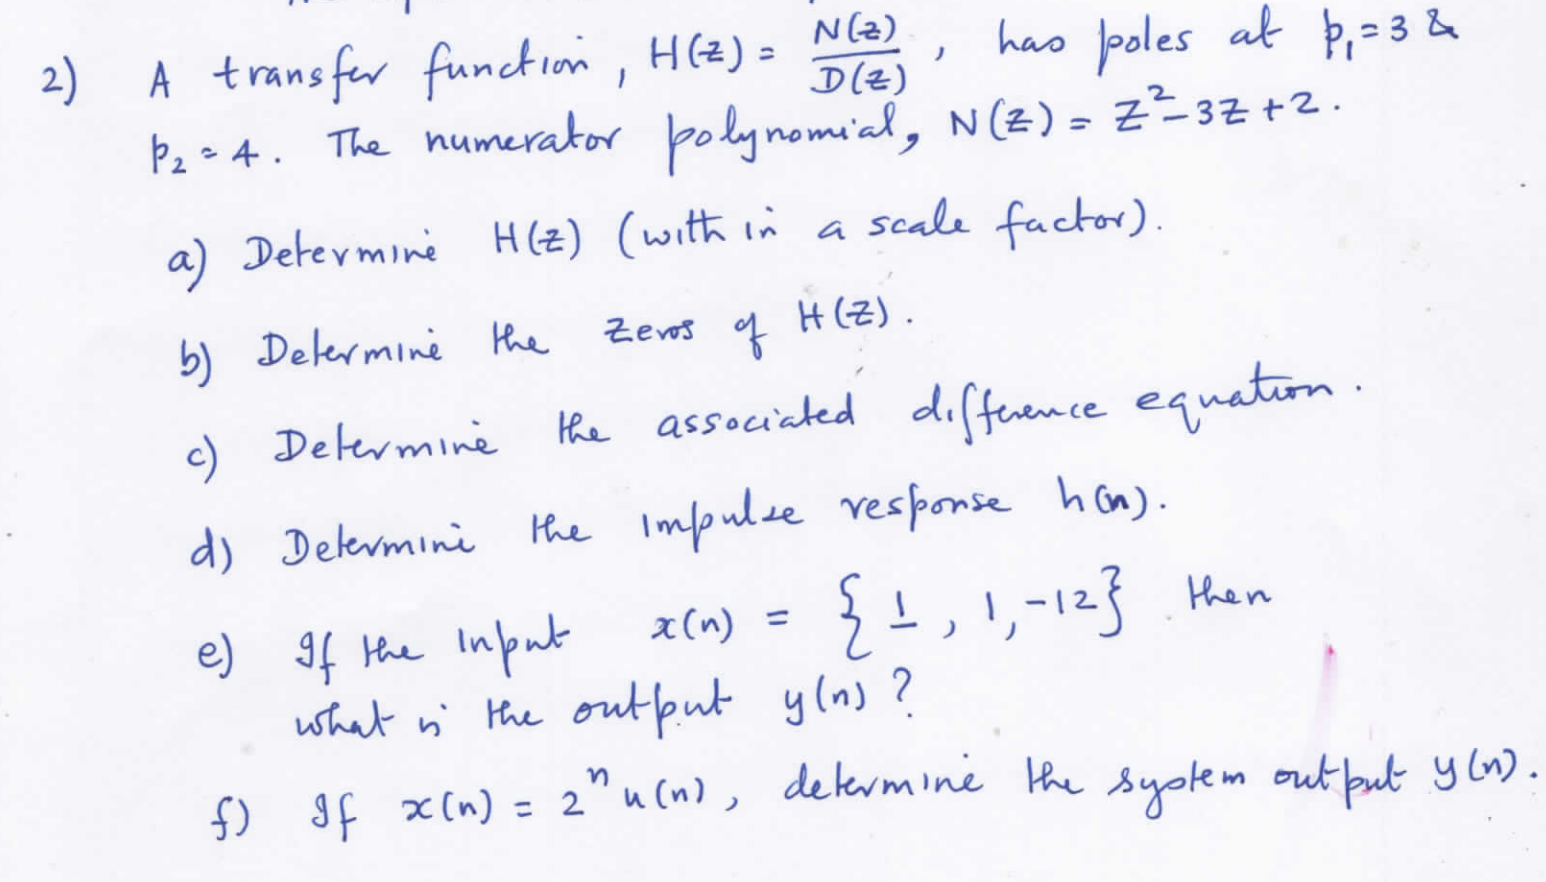 2) A transfer function, H(z) = N(z)/D(z), has poles at p₁=3 &
p₂=4. The numerator polynomial, N(z) = z²-3z+2.
a) Determine H(z) (with in a scale factor).
b) Determine the zeros of H(z).
c) Determine the associated difference equation.
d) Determine the impulse response h(n).
e) If the input x(n) = {1, 1, -12} then
what is the output y(n)?
f) If x(n) = 2ⁿu(n), determine the system output y(n).